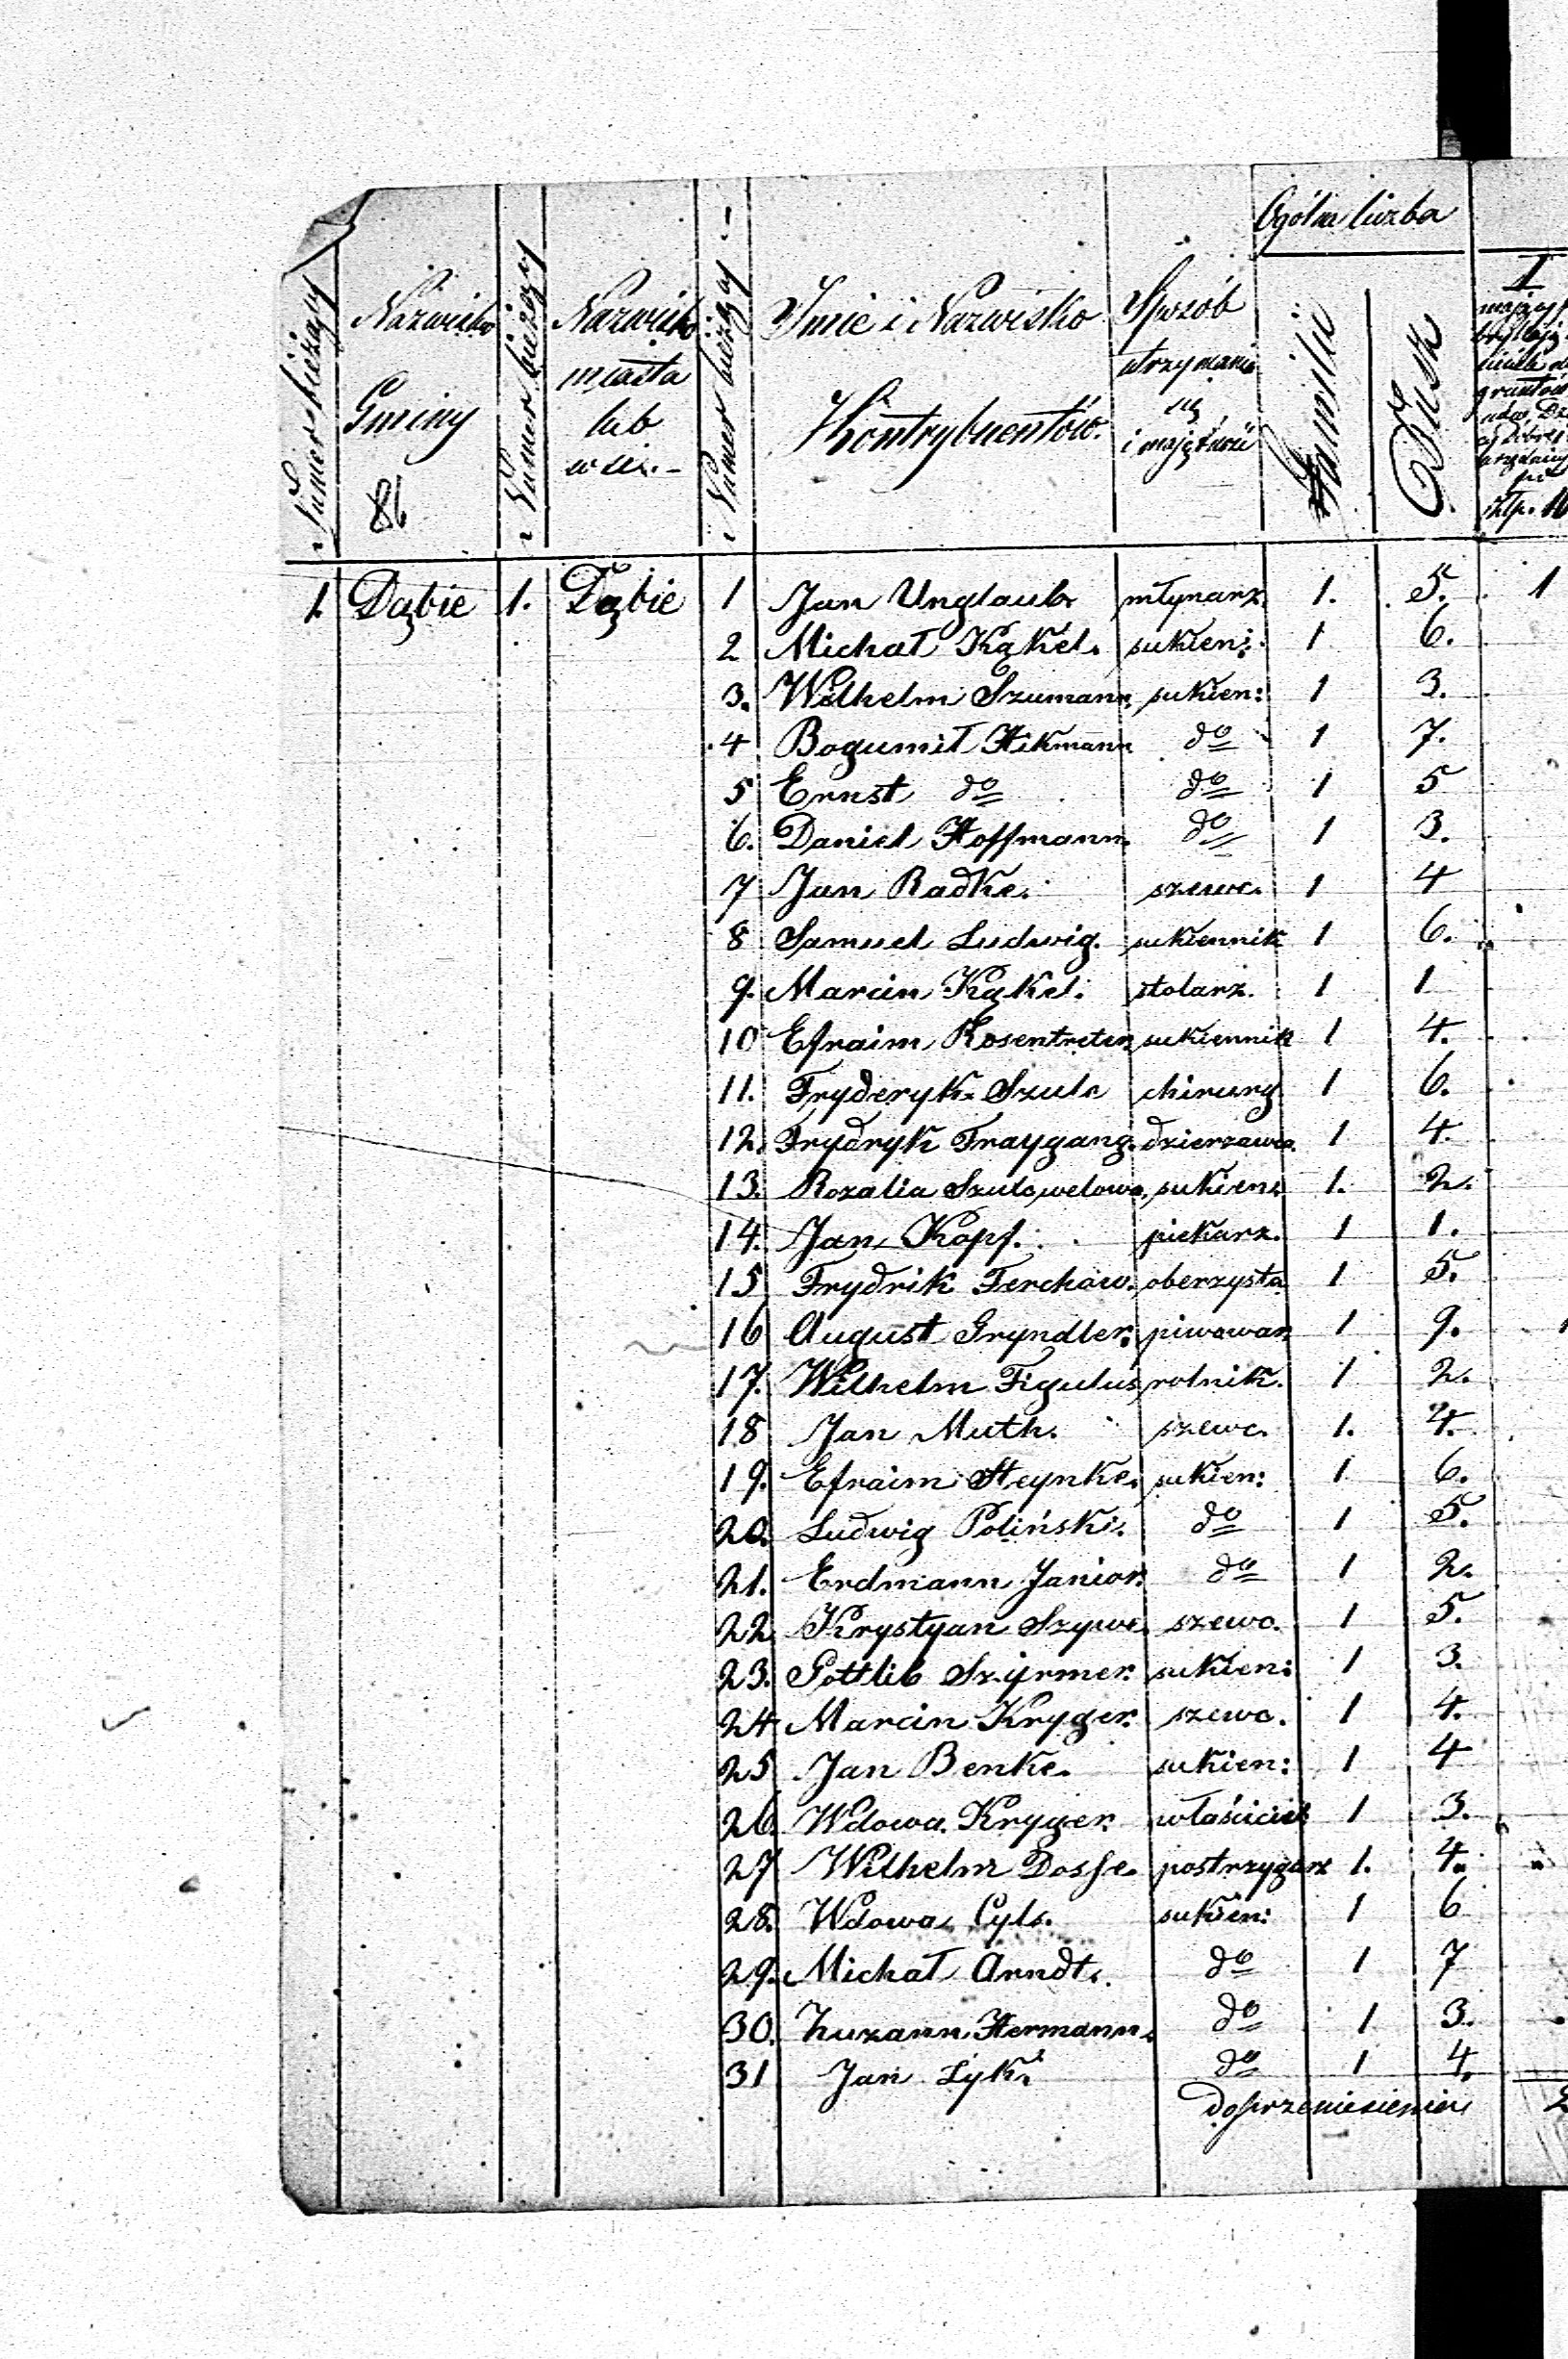 Ogólna liczba
Numer bieżący
Nazwisko
Gminy
86
Numer bieżący
Nazwisko
miasta
lub
wsi.-
Numer bieżący
Imie i Nazwisko
Kontrybuentów.
Sposób
utrzymania
się
i majętność
Familii
Dusz
I
złp. 10
1. Dąbie 1. Dąbie 1 Jan Unglaub młynarz. 1. 5. 1
2 Michał Kąkel. sukien: 1 6.
3. Wilhelm Szumann. sukien: 1 3.
4 Bogumił Hikmann do 1 7.
5 Ernst do do 1 5
6. Daniel Hoffmann. do 1 3.
7 Jan Radke. szewc. 1 4
8 Samuel Ludwig. sukiennik 1 6.
9. Marcin Kąkel. stolarz. 1 1
10 Efraim Rosentreter, sukiennik 1 4.
11. Fryderyk Szulc chirurg 1 6.
12. Frydryk Fraygang. dzierzawca. 1 4.
13. Rozalia sukien: 1. 2.
14. Jan Kopf. piekarz. 1 1.
15 Frydrik Ferchow. oberzysta 1 5.
16 August Gryndler. piwowar 1 9.
17. Wilhelm Figulus, rolnik. 1 2.
18 Jan Muth. szewc. 1. 4.
19. Efraim Heynke. sukien: 1 6.
20. Ludwig Poliński. do 1 5.
21. Erdmann Janior. do 1 2.
22 Krystyan Szywe. szewc. 1 5.
23. Gottlib Szyrmer. sukien: 1 3.
24 Marcin Kryger. szewc. 1 4.
25 Jan Benke. sukien: 1 4
26. Wdowa Kryger. właściciel 1 3.
27 Wilhelm Dosse. postrzygarz 1. 4.
28. Wdowa Cyls. sukien: 1 6
29. Michał Arndt. do 1 7
30. Zuzann Hermann. do 1 3.
31 Jan Lyk. do 1 4.
do przeniesienia 2